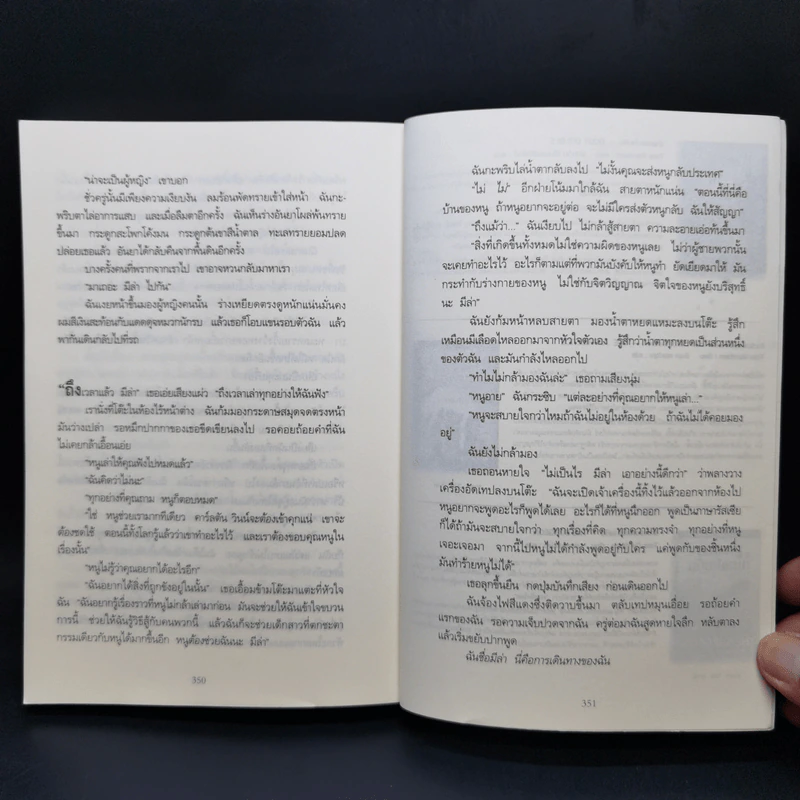 "น่าจะเป็นผู้หญิง" เขาบอก
ชั่วครู่นั้นมีเพียงความเงียบงัน ลมร้อนพัดทรายเข้าใส่หน้า ฉันกะ-
พริบตาไล่อาการแสบ และเมื่อลืมตาอีกครั้ง ฉันเห็นร่างอันยาโผล่พ้นทราย
ขึ้นมา กระดูกสะโพกโค้งมน กระดูกต้นขาสีน้ำตาล ทะเลทรายยอมปลด
ปล่อยเธอแล้ว อันยาได้กลับคืนจากพื้นดินอีกครั้ง
บางครั้งคนที่พรากจากเราไป เขาอาจหวนกลับมาหาเรา
"มาเถอะ มีล่า ไปกัน"
ฉันแหงนหน้าขึ้นมองผู้หญิงคนนั้น ร่างเหยียดตรงดูหนักแน่นมั่นคง
ผมสีเงินสะท้อนกับแดดดุจหมวกนักรบ แล้วเธอก็โอบแขนรอบตัวฉัน แล้ว
พากันเดินกลับไปที่รถ
"ถึงเวลาแล้ว มีล่า" เธอเอ่ยเสียงแผ่ว "ถึงเวลาเล่าทุกอย่างให้ฉันฟัง"
เรานั่งที่โต๊ะในห้องไร้หน้าต่าง ฉันก้มมองกระดาษสมุดจดตรงหน้า
มันว่างเปล่า รอหมึกปากกาของเธอขีดเขียนลงไป รอคอยถ้อยคำที่ฉัน
ไม่เคยกล้าเอื้อนเอ่ย
"หนูเล่าให้คุณฟังไปหมดแล้ว"
"ฉันคิดว่าไม่นะ"
"ทุกอย่างที่คุณถาม หนูก็ตอบหมด"
"ใช่ หนูช่วยเรามากทีเดียว คาร์ลตัน วินน์จะต้องเข้าคุกแน่ เขาจะ
ต้องชดใช้ ตอนนี้ทั้งโลกรู้แล้วว่าเขาทำอะไรไว้ และเราต้องขอบคุณหนูใน
เรื่องนั้น"
"หนูไม่รู้ว่าคุณอยากได้อะไรอีก"
"ฉันอยากได้สิ่งที่ถูกขังอยู่ในนั้น" เธอเอื้อมข้ามโต๊ะมาแตะที่หัวใจ
ฉัน "ฉันอยากรู้เรื่องราวที่หนูไม่กล้าเล่ามาก่อน มันจะช่วยให้ฉันเข้าใจขบวน
การนี้ ช่วยให้ฉันรู้วิธีสู้กับคนพวกนี้ แล้วฉันก็จะช่วยเด็กสาวที่ตกชะตา
กรรมเดียวกับหนูได้มากขึ้นอีก หนูต้องช่วยฉันนะ มีล่า"
350
ฉันกะพริบไล่น้ำตากลับลงไป "ไม่งั้นคุณจะส่งหนูกลับประเทศ"
"ไม่ ไม่" อีกฝ่ายโน้มมาใกล้ฉัน สายตาหนักแน่น "ตอนนี้ที่นี่คือ
บ้านของหนู ถ้าหนูอยากจะอยู่ต่อ จะไม่มีใครส่งตัวหนูกลับ ฉันให้สัญญา"
"ถึงแม้ว่า..." ฉันเงียบไป ไม่กล้าสู้สายตา ความละอายเอ่อท้นขึ้นมา
"สิ่งที่เกิดขึ้นทั้งหมดไม่ใช่ความผิดของหนูเลย ไม่ว่าผู้ชายพวกนั้น
จะเคยทำอะไรไว้ อะไรก็ตามแต่ที่พวกมันบังคับให้หนูทำ ยัดเยียดมาให้ มัน
กระทำกับร่างกายของหนู ไม่ใช่กับจิตวิญญาณ จิตใจของหนูยังบริสุทธิ์
นะ มีล่า"
ฉันยังก้มหน้าหลบสายตา มองน้ำตาหยดแหมะลงบนโต๊ะ รู้สึก
เหมือนมีเลือดไหลออกมาจากหัวใจตัวเอง รู้สึกว่าน้ำตาทุกหยดเป็นส่วนหนึ่ง
ของตัวฉัน และมันกำลังไหลออกไป
"ทำไมไม่กล้ามองฉันล่ะ" เธอถามเสียงนุ่ม
"หนูอาย" ฉันกระซิบ "แต่ละอย่างที่คุณอยากให้หนูเล่า..."
"หนูจะสบายใจกว่าไหมถ้าฉันไม่อยู่ในห้องด้วย ถ้าฉันไม่ได้คอยมอง
อยู่"
ฉันยังไม่กล้ามอง
เธอถอนหายใจ "ไม่เป็นไร มีล่า เอาอย่างนี้ดีกว่า" ว่าพลางวาง
เครื่องอัดเทปลงบนโต๊ะ "ฉันจะเปิดเจ้าเครื่องนี้ทิ้งไว้แล้วออกจากห้องไป
หนูอยากจะพูดอะไรก็พูดได้เลย อะไรก็ได้ที่หนูนึกออก พูดเป็นภาษารัสเซีย
ก็ได้ถ้ามันจะสบายใจกว่า ทุกเรื่องที่คิด ทุกความทรงจำ ทุกอย่างที่หนู
เจอะเจอมา จากนี้ไปหนูไม่ได้กำลังพูดอยู่กับใคร แค่พูดกับของชิ้นหนึ่ง
มันทำร้ายหนูไม่ได้"
เธอลุกขึ้นยืน กดปุ่มบันทึกเสียง ก่อนเดินออกไป
ฉันจ้องไฟสีแดงซึ่งติดวาบขึ้นมา ตลับเทปหมุนเอื่อย รอถ้อยคำ
แรกของฉัน รอความเจ็บปวดจากฉัน ครู่ต่อมาฉันสูดหายใจลึก หลับตาลง
แล้วเริ่มขยับปากพูด
ฉันชื่อมีล่า นี่คือการเดินทางของฉัน
351